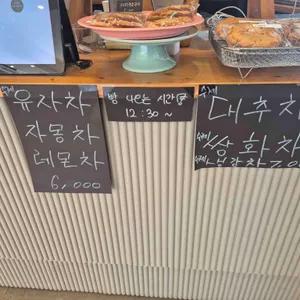 수제
유자차
자몽차
레몬차
6,000
빵 나오는 시간
12:30~
수제
대추차
수제
쌍화차
수제